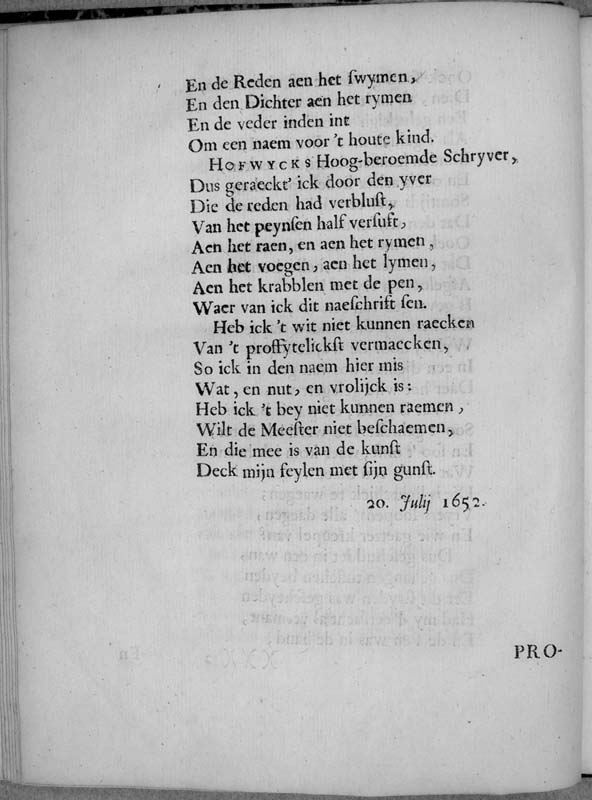 En de Reden aen het ſwymen,
En den Dichter aen het rymen
En de veder inden int
Om een naem voor 't houte kind.
HOFWYCKS Hoog-beroemde Schryver,
Dus geraeckt' ick door den yver
Die de reden had verbluſt,
Van het peynſen half verſuft,
Aen het raen, en aen het rymen,
Aen het voegen, aen het lymen,
Aen het krabblen met de pen,
Waer van ick dit naeſchrift ſen.
Heb ick 't wit niet kunnen raecken
Van 't proffytelickſt vermaecken,
So ick in den naem hier mis
Wat, en nut, en vrolijck is:
Heb ick 't bey niet kunnen raemen,
Wilt de Meeſter niet beſchaemen,
En die mee is van de kunſt
Deck mijn feylen met ſijn gunſt.
20. Julij 1652.
PRO-